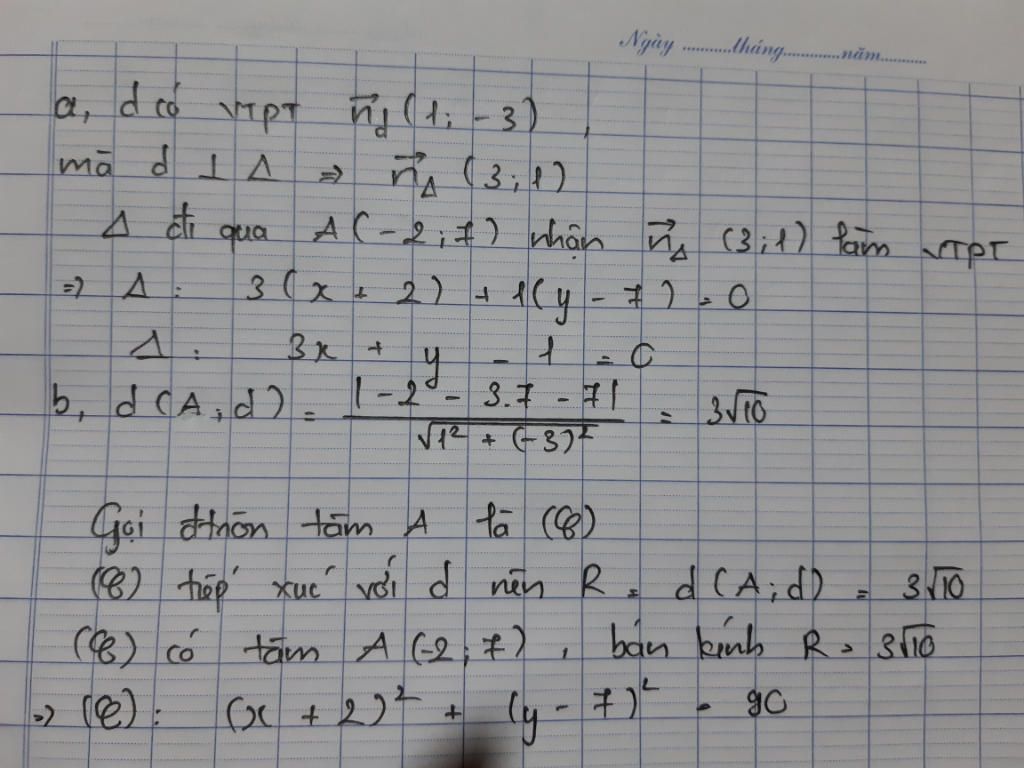 Ngày ...........tháng............năm...........
a, d có VTPT n⃗d (1; -3),
mà d ⊥ Δ => n⃗Δ (3; 1)
Δ đi qua A(-2; 7) nhận n⃗Δ (3; 1) làm VTPT
=> Δ: 3(x + 2) + 1(y - 7) = 0
Δ: 3x + y - 1 = 0
b, d(A; d) = |-2 - 3.7 - 7| / √(1² + (-3)²) = 3√10
Gọi đtròn tâm A là (C)
(C) tiếp xúc với d nên R = d(A; d) = 3√10
(C) có tâm A(-2; 7), bán kính R = 3√10
=> (C): (x + 2)² + (y - 7)² = 90